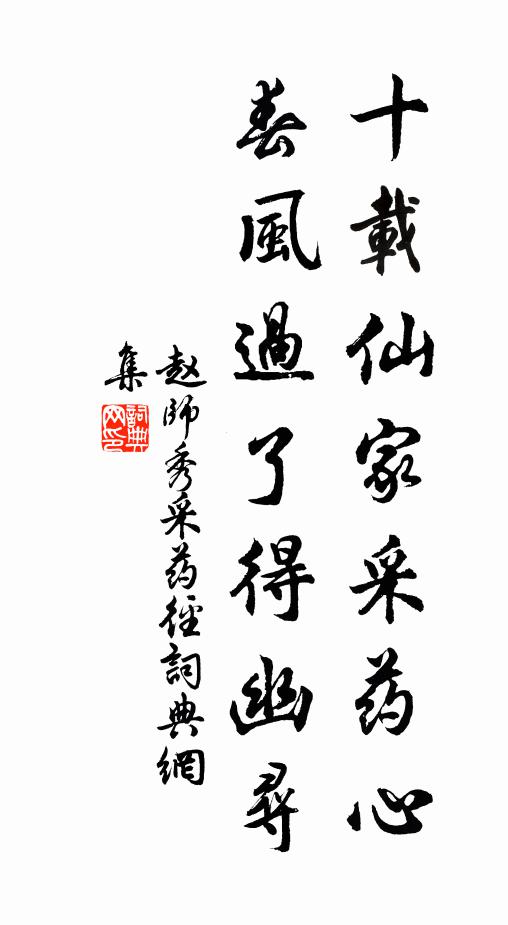 十載仙家采药心
春風過了得幽尋
赵師秀采药徑詞典網
集
詞典網印